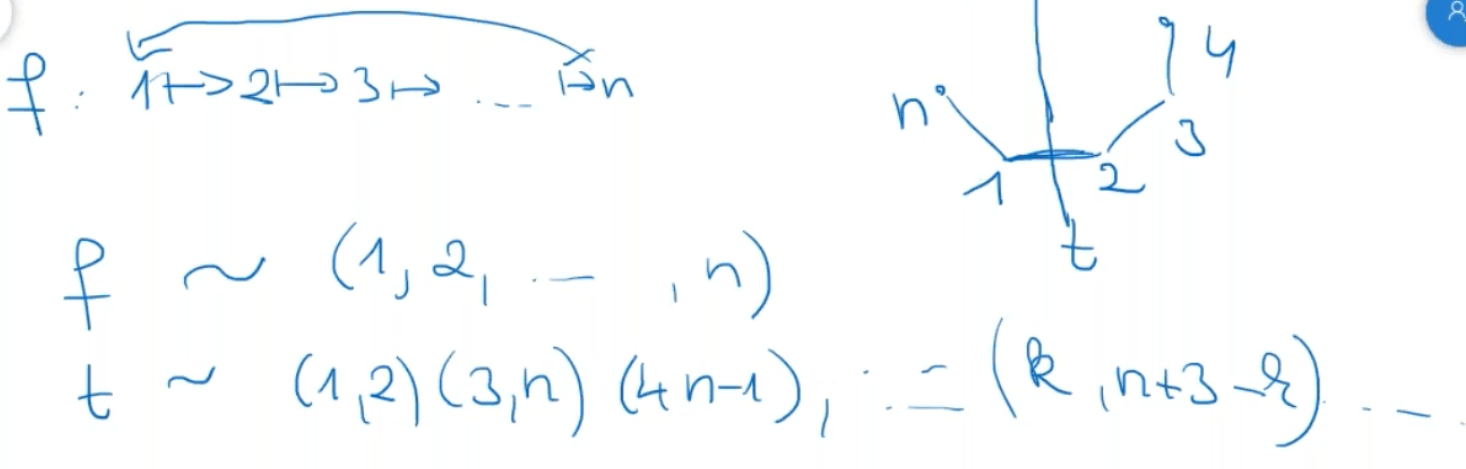 f: 1↦2↦3↦ ... ↦n
n 1 2 3 4
t
f ~ (1, 2, ... , n)
t ~ (1,2)(3,n)(4 n-1), ... (k, n+3-k) ...